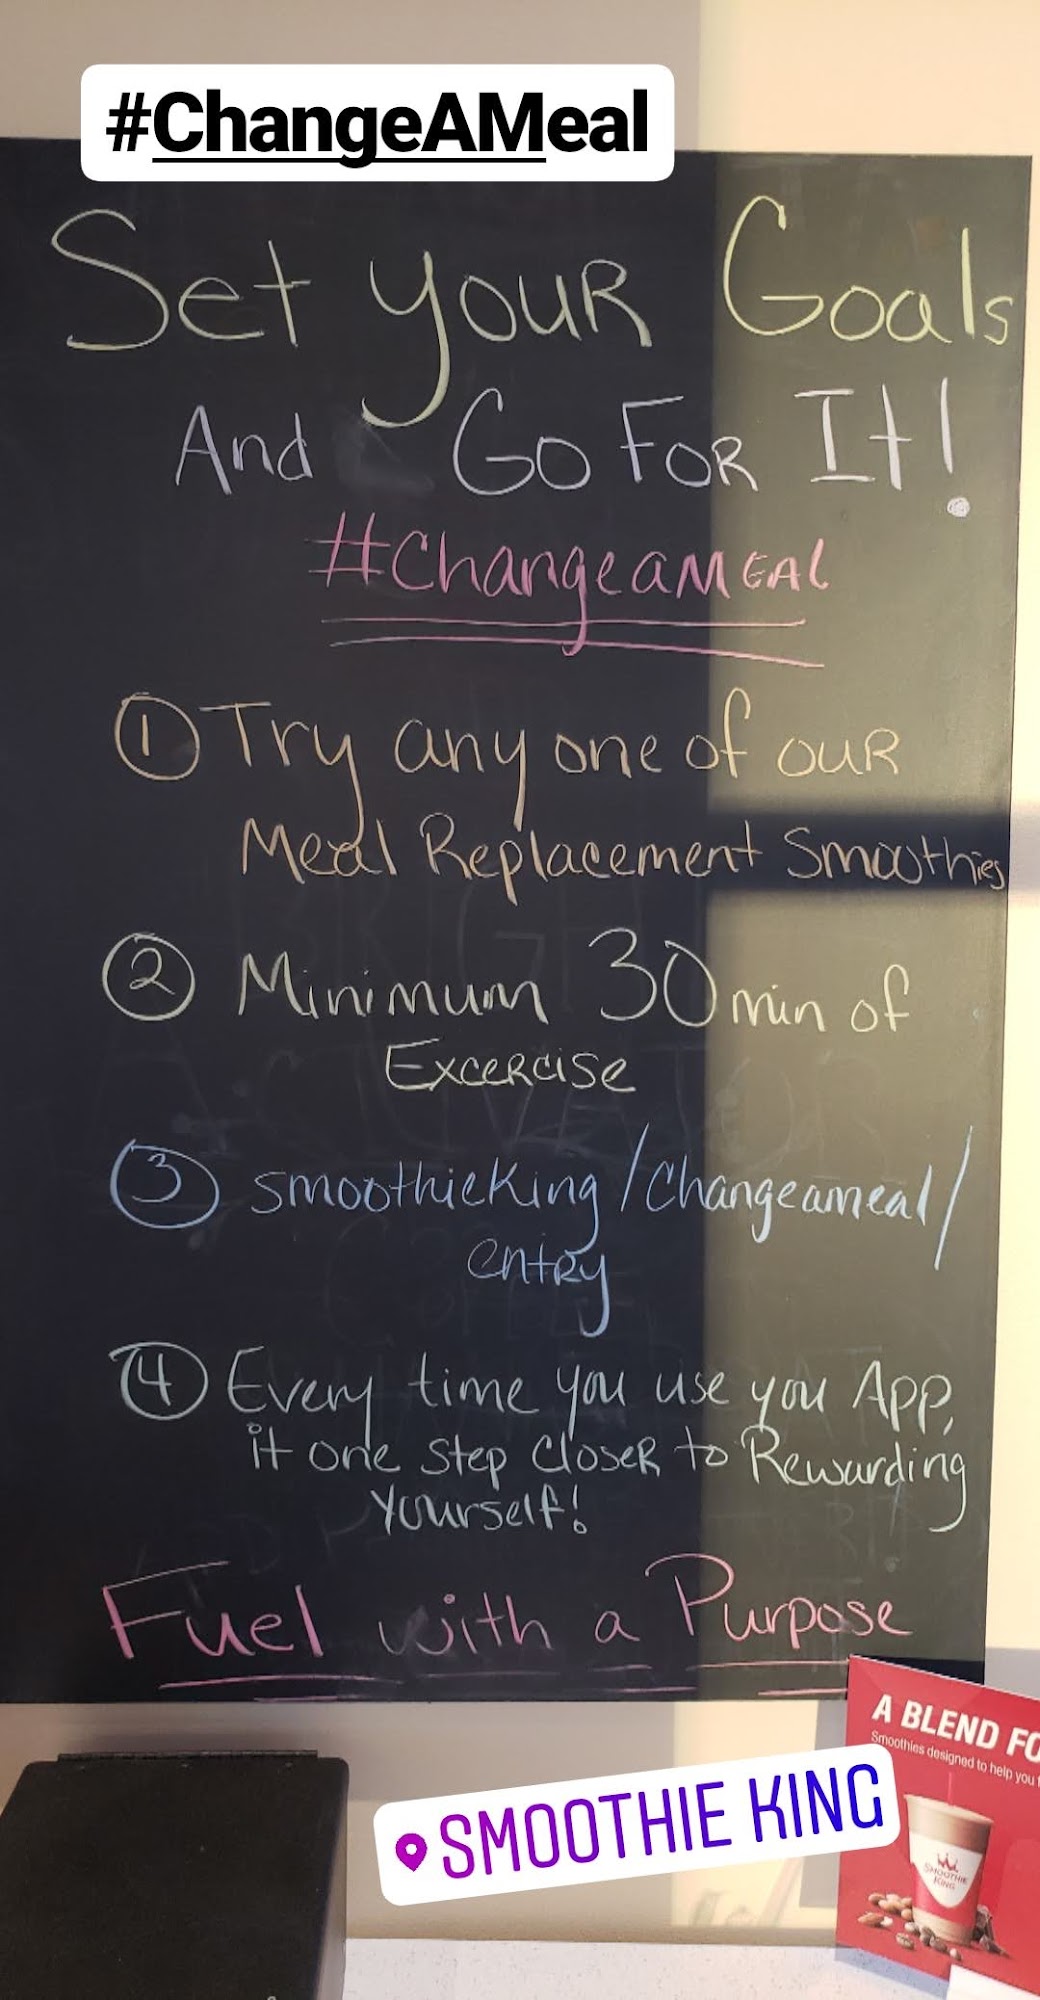 #ChangeAMeal
Set your Goals
And Go For It!
#ChangeaMEAL
① Try any one of our
Meal Replacement Smoothies
② Minimum 30 min of
Excercise
③ smoothieKing/Changeameal/
entry
④ Every time you use you App,
it one step closer to Rewarding
yourself!
Fuel with a Purpose
A BLEND FO
Smoothies designed to help you
SMOOTHIE KING
SMOOTHIE
KING